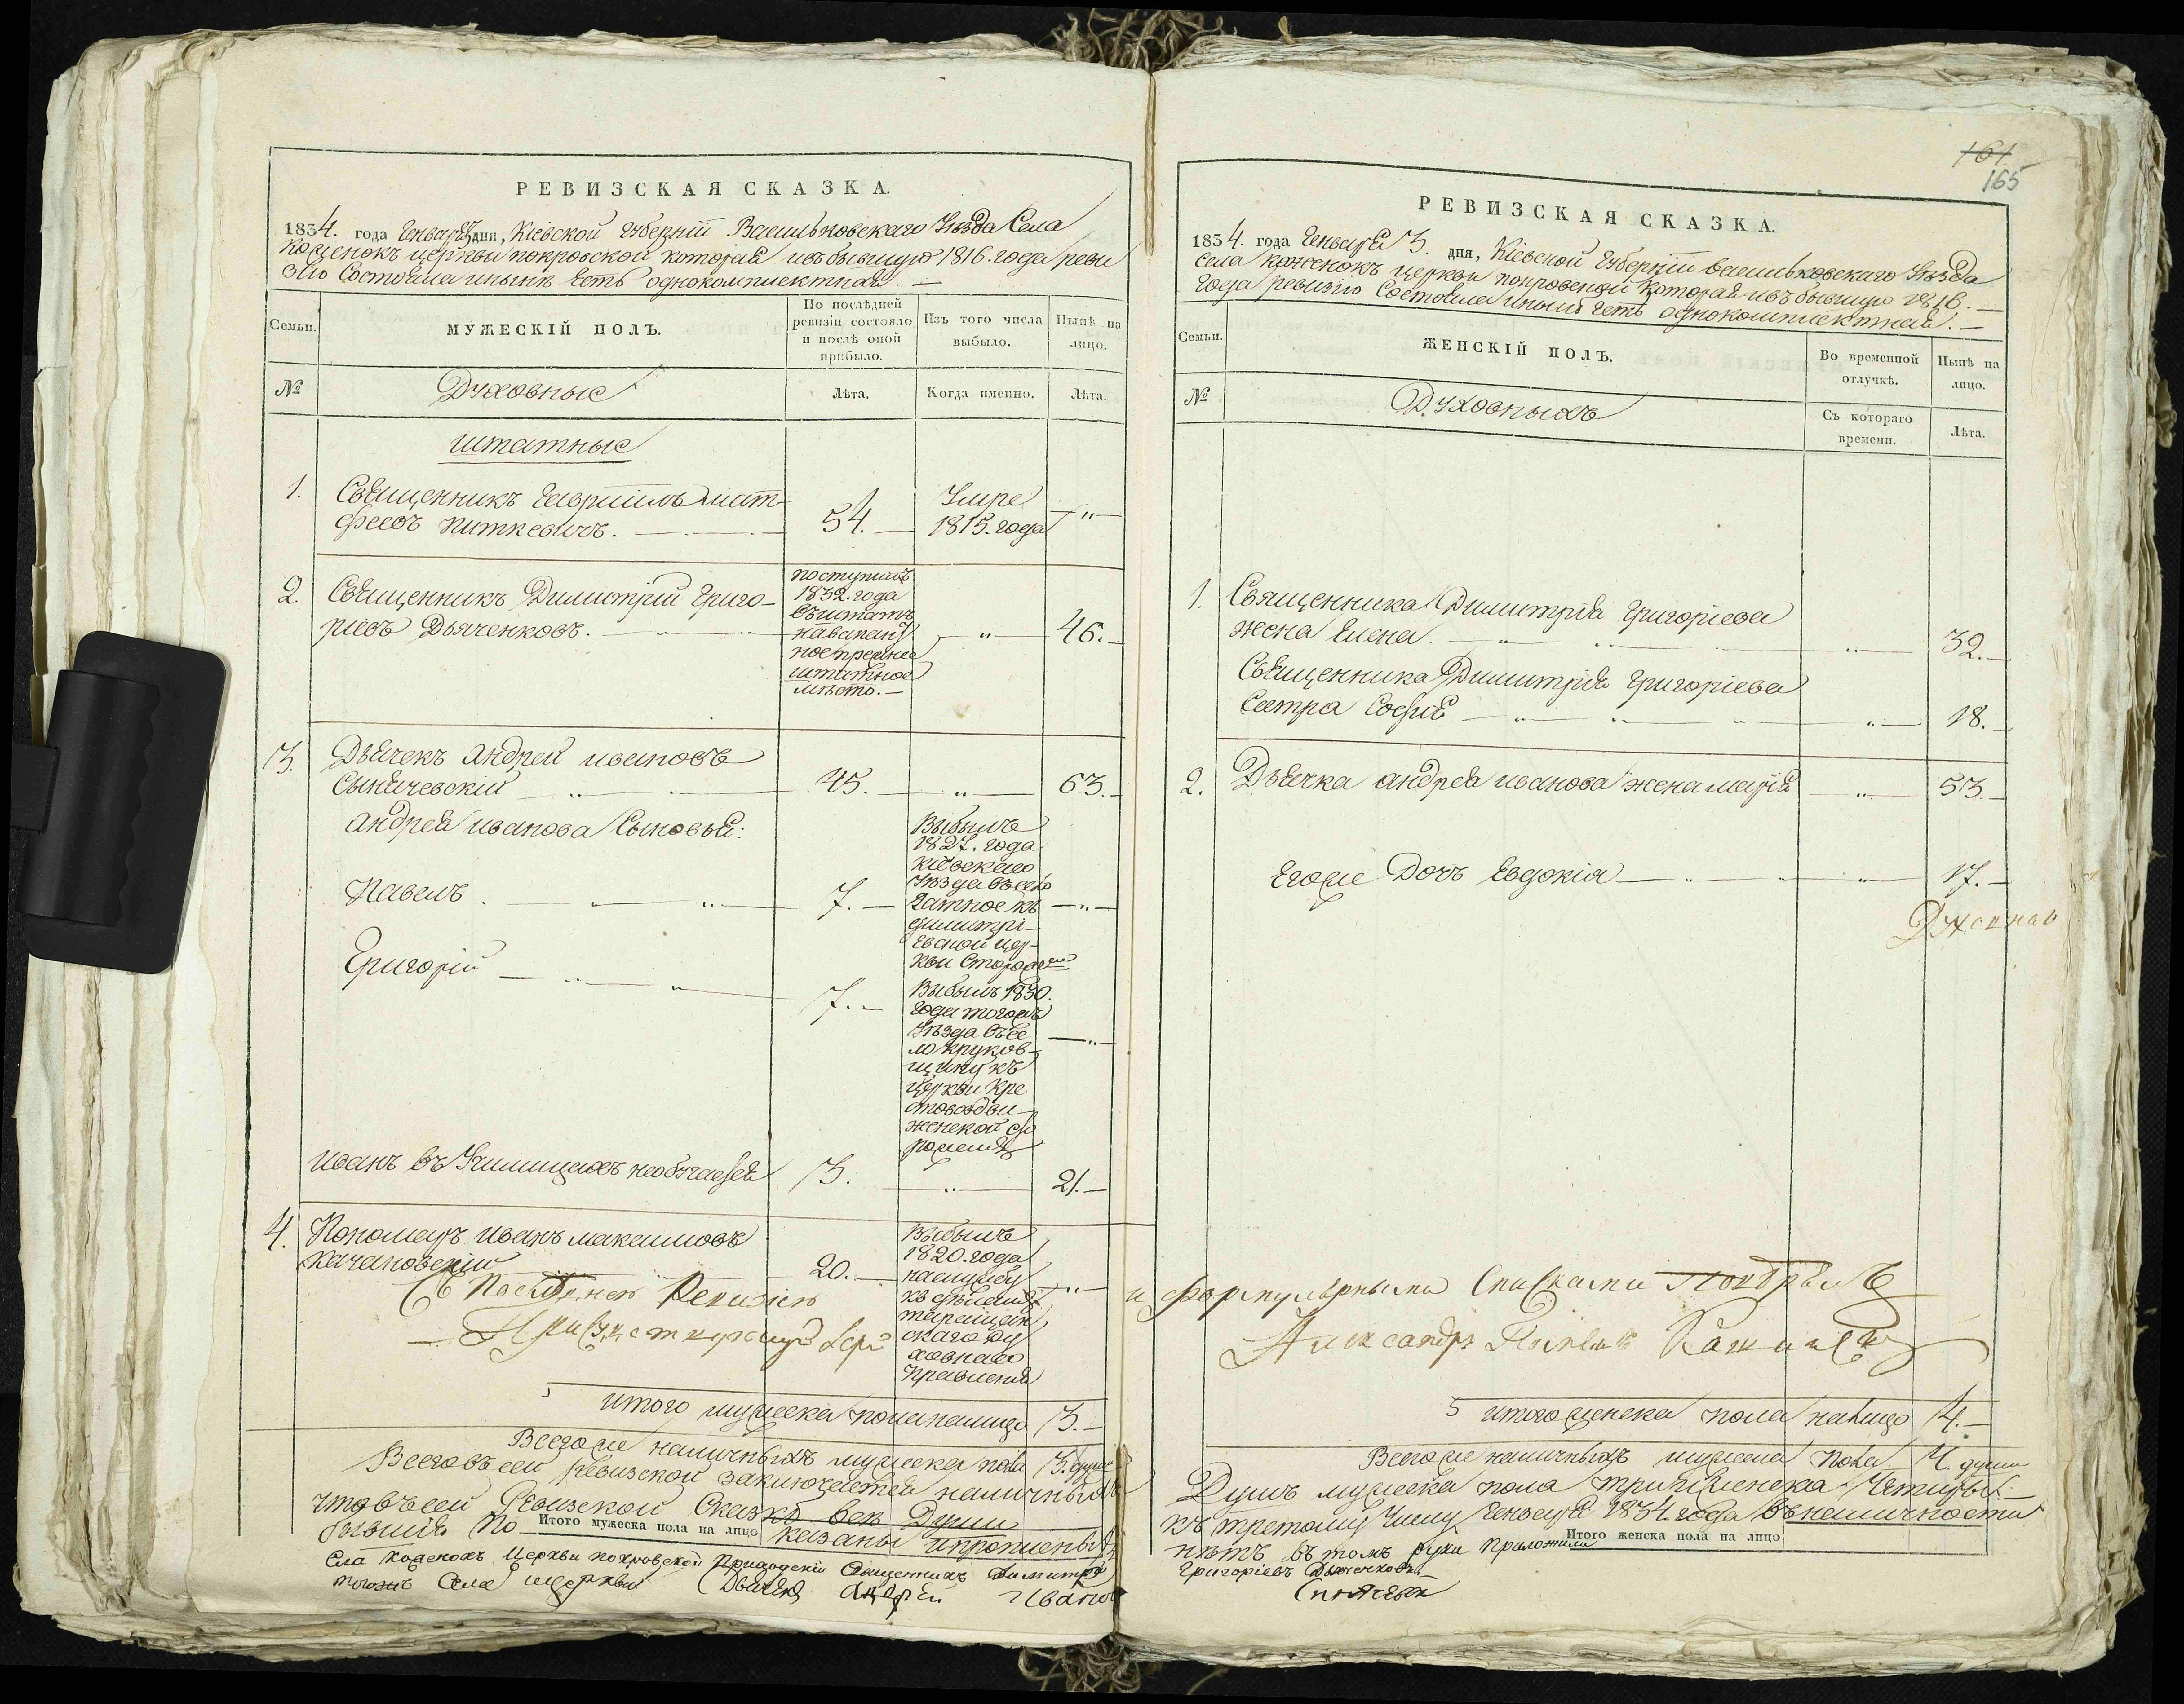 РЕВИЗСКАЯ СКАЗКА.
1834. года Генваря 3 дня, Кіевской Губерніи Васильковскаго Уѣзда Села
Коженокъ церкви покровской которая и въ бывшую 1816. года реви
зію Состояла и нынѣ есть однокомплектная. —
Семьи.
МУЖЕСКІЙ ПОЛЪ.
По послѣдней ревизіи состояло и послѣ оной прибыло.
Изъ того числа выбыло.
Нынѣ на лицо.
№
Духовные
Лѣта.
Когда именно.
Лѣта.
штатные
1. Священникъ Гавріилъ Мат-
феевъ Питкевичъ. — 54. — Умре 1815. года — " —
2. Священникъ Димитрій Григо-
ріевъ Дьяченковъ. —
поступилъ
1832. года
въ штатъ
на вакант
ное
штатное
мѣсто. —
— " — 46. —
3. Дьячекъ Андрей Ивановъ
Синячевскій — 45. — " — 63. —
Андрея Иванова Сыновья:
Павелъ. — " — 7. —
Выбылъ
1827. года
Кіевскаго
Уѣзда въ село
Гатное къ
Димитрі-
евской цер-
кви
— " —
Григорій — " — 7. —
Выбылъ 1830.
года тогожъ
Уѣзда въ се
ло Круков-
щину къ
Церкви Кре
стовоздви-
женской
— " —
Иванъ въ Училищахъ необучался 3. — " — 21. —
4. Пономарь Иванъ Максимовъ
Качановскій 20. —
Выбылъ
1820. года
на службу
къ дѣламъ
таращан
скаго ду
ховнаго
Правленія
— " —
Съ Послѣднею Ревизіею
Итого мужеска пола на лицо 3. —
Всего же наличныхъ мужеска пола 3. души
Всего въ сей ревизской заключается наличныхъ
что въ сей Ревизской Сказкѣ всѣ Души
бывшія по
Итого мужеска пола на лицо
казаны и прописаны
Села Коженокъ Церкви покровской Приходскій Священникъ Димитрій
тоижъ Села и Церкви Дьячекъ Андрей Ивановъ
161
165
РЕВИЗСКАЯ СКАЗКА.
1834. года Генваря 3. дня, Кіевской Губерніи Васильковскаго Уѣзда
Села Коженокъ церкви покровской которая и въ бывшую 1816. —
Года ревизію Состояла и нынѣ есть однокомплектная. —
Семьи.
ЖЕНСКІЙ ПОЛЪ.
Во временной отлучкѣ.
Нынѣ на лицо.
№
Духовныхъ
Съ котораго времени.
Лѣта.
1. Священника Димитрія Григоріева
жена Елена — " — 32. —
Священника Димитрія Григоріева
Сестра Софія — " — 18. —
2. Дьячка Андрея Иванова жена Марія — " — 53. —
Егоже Дочь Евдокія — " — 17. —
и формулярными Списками
Александръ
Итого женска пола на лицо 4. —
Всего же наличныхъ пола 4. души
Душъ мужеска пола три и женска Четыры
къ третому Числу Генваря 1834. года въ наличности
нѣтъ въ томъ руки приложили
Итого женска пола на лицо
Григоріевъ Дьяченковъ